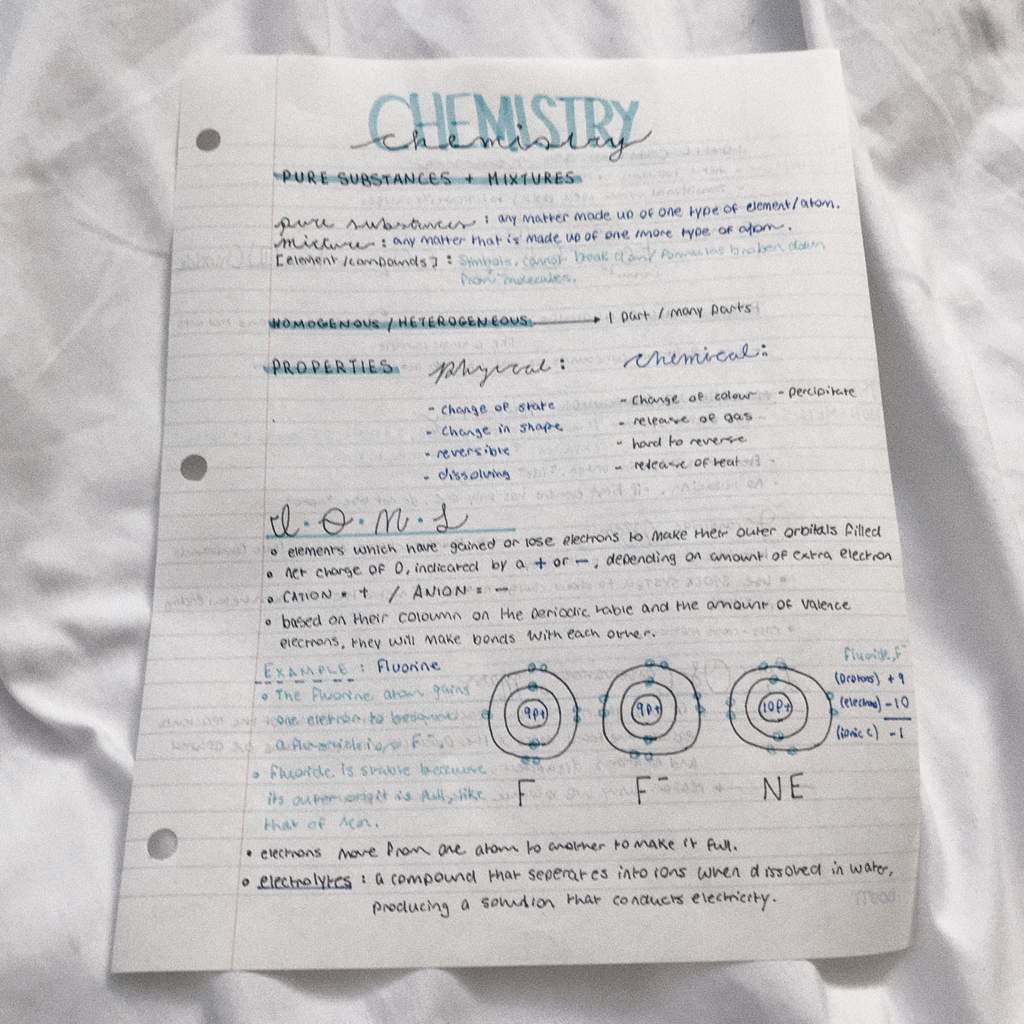 CHEMISTRY
chemistry
PURE SUBSTANCES + MIXTURES
pure substances : any matter made up of one type of element/atom.
mixture : any matter that is made up of one/more type of atom.
[element/compounds] : symbols, cannot break down/ formulas broken down
from molecules.
HOMOGENOUS / HETEROGENEOUS → 1 part / many parts
PROPERTIES physical : chemical :
- change of state - change of colour - percipitate
- change in shape - release of gas
- reversible - hard to reverse
- dissolving - release of heat
I.O.N.S
• elements which have gained or lose electrons to make their outer orbitals filled
• net charge of 0, indicated by a + or -, depending on amount of extra electron
• CATION = + / ANION = -
• based on their coloumn on the periodic table and the amount of valence
electrons, they will make bonds with each other.
EXAMPLE : Fluorine
• The fluorine atom gains
one electron to
a F⁻.
• Fluoride is stable because
its outer orbit is full, like
that of neon.
9p+ 9p+ 10p+
F F⁻ NE
Fluoride, F⁻
(protons) + 9
(electrons) - 10
(ionic c) - 1
• electrons move from one atom to another to make it full.
• electrolytes : a compound that seperates into ions when dissoved in water,
producing a solution that conducts electricity.